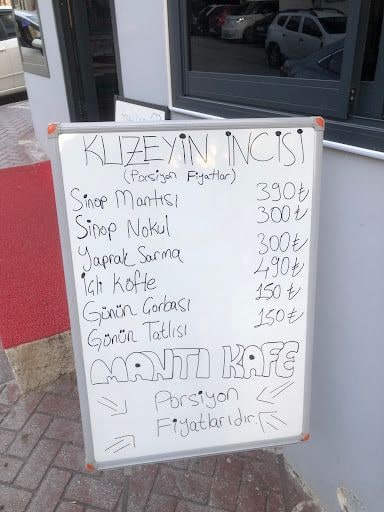 KUZEYİN İNCİSİ
(Porsiyon Fiyatlar)
Sinop Mantısı 390₺
Sinop Nokul 300₺
Yaprak Sarma 300₺
İçli Köfte 490₺
Günün Çorbası 150₺
Günün Tatlısı 150₺
MANTI KAFE
Porsiyon
Fiyatlarıdır.